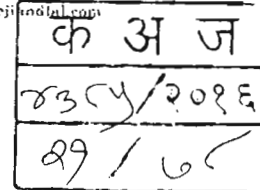 क अ ज
४३८५/२०१६
२१ / ७८